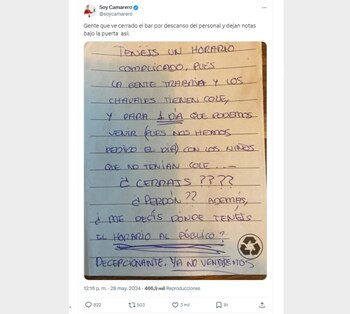 Soy Camarero
@soycamarero
Gente que ve cerrado el bar por descanso del personal y dejan notas
bajo la puerta así.
TENEIS UN HORARIO
COMPLICADO, PUES
LA GENTE TRABAJA Y LOS
CHAVALES TIENEN COLE,
Y PARA 1 DÍA QUE PODEMOS
VENIR (PUES NOS HEMOS
PEDIDO EL DÍA) CON LOS NIÑOS
QUE NO TENÍAN COLE ...
¿ CERRAIS ????
¿ PERDÓN ?? ADEMÁS,
¿ ME DECÍS DONDE TENEÍS
EL HORARIO AL PÚBLICO ?
DECEPCIONANTE. YA NO VENDREMOS
12:16 p. m. · 28 may. 2024 · 466,9 mil Reproducciones
822
503
3 mil
91